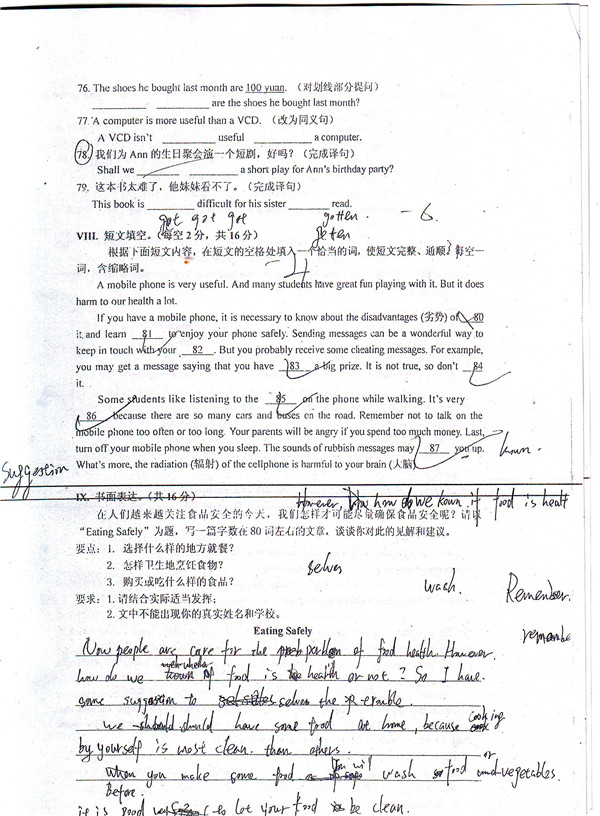 76. The shoes he bought last month are 100 yuan. （对划线部分提问）
________ ________ are the shoes he bought last month?
77. A computer is more useful than a VCD. （改为同义句）
A VCD isn't ________ useful ________ a computer.
78. 我们为 Ann 的生日聚会演一个短剧，好吗？（完成译句）
Shall we ________ ________ a short play for Ann's birthday party?
79. 这本书太难了，他妹妹看不了。（完成译句）
This book is ________ difficult for his sister ________ read.
got got got gotten. - 6.
VIII. 短文填空。（每空 2 分，共 16 分）
根据下面短文内容，在短文的空格处填入一个恰当的词，使短文完整、通顺，每空一
词，含缩略词。
A mobile phone is very useful. And many students have great fun playing with it. But it does
harm to our health a lot.
If you have a mobile phone, it is necessary to know about the disadvantages (劣势) of 80
it and learn 81 to enjoy your phone safely. Sending messages can be a wonderful way to
keep in touch with your 82 . But you probably receive some cheating messages. For example,
you may get a message saying that you have 83 a big prize. It is not true, so don't 84
it.
Some students like listening to the 85 on the phone while walking. It's very
86 because there are so many cars and buses on the road. Remember not to talk on the
mobile phone too often or too long. Your parents will be angry if you spend too much money. Last,
turn off your mobile phone when you sleep. The sounds of rubbish messages may 87 you up.
known.
What's more, the radiation (辐射) of the cellphone is harmful to your brain (大脑)
suggestion
IX. 书面表达。（共 16 分）
However how do we known if food is healt
在人们越来越关注食品安全的今天，我们怎样才可能尽量确保食品安全呢？请以
“Eating Safely”为题，写一篇字数在 80 词左右的文章，谈谈你对此的见解和建议。
要点：1. 选择什么样的地方就餐？
2. 怎样卫生地烹饪食物？
selves
3. 购买或吃什么样的食品？
wash.
Remember.
要求：1. 请结合实际适当发挥；
2. 文中不能出现你的真实姓名和学校。
remembe
Eating Safely
Now people are care for the of food health. However.
how do we food is health or not? So I have.
some suggestion to selves the
we should have some food at home, because cooking
by yourself is most clean. than others.
When you make some food You wil wash food or vegetables.
Before.
it is good to let your food be clean.